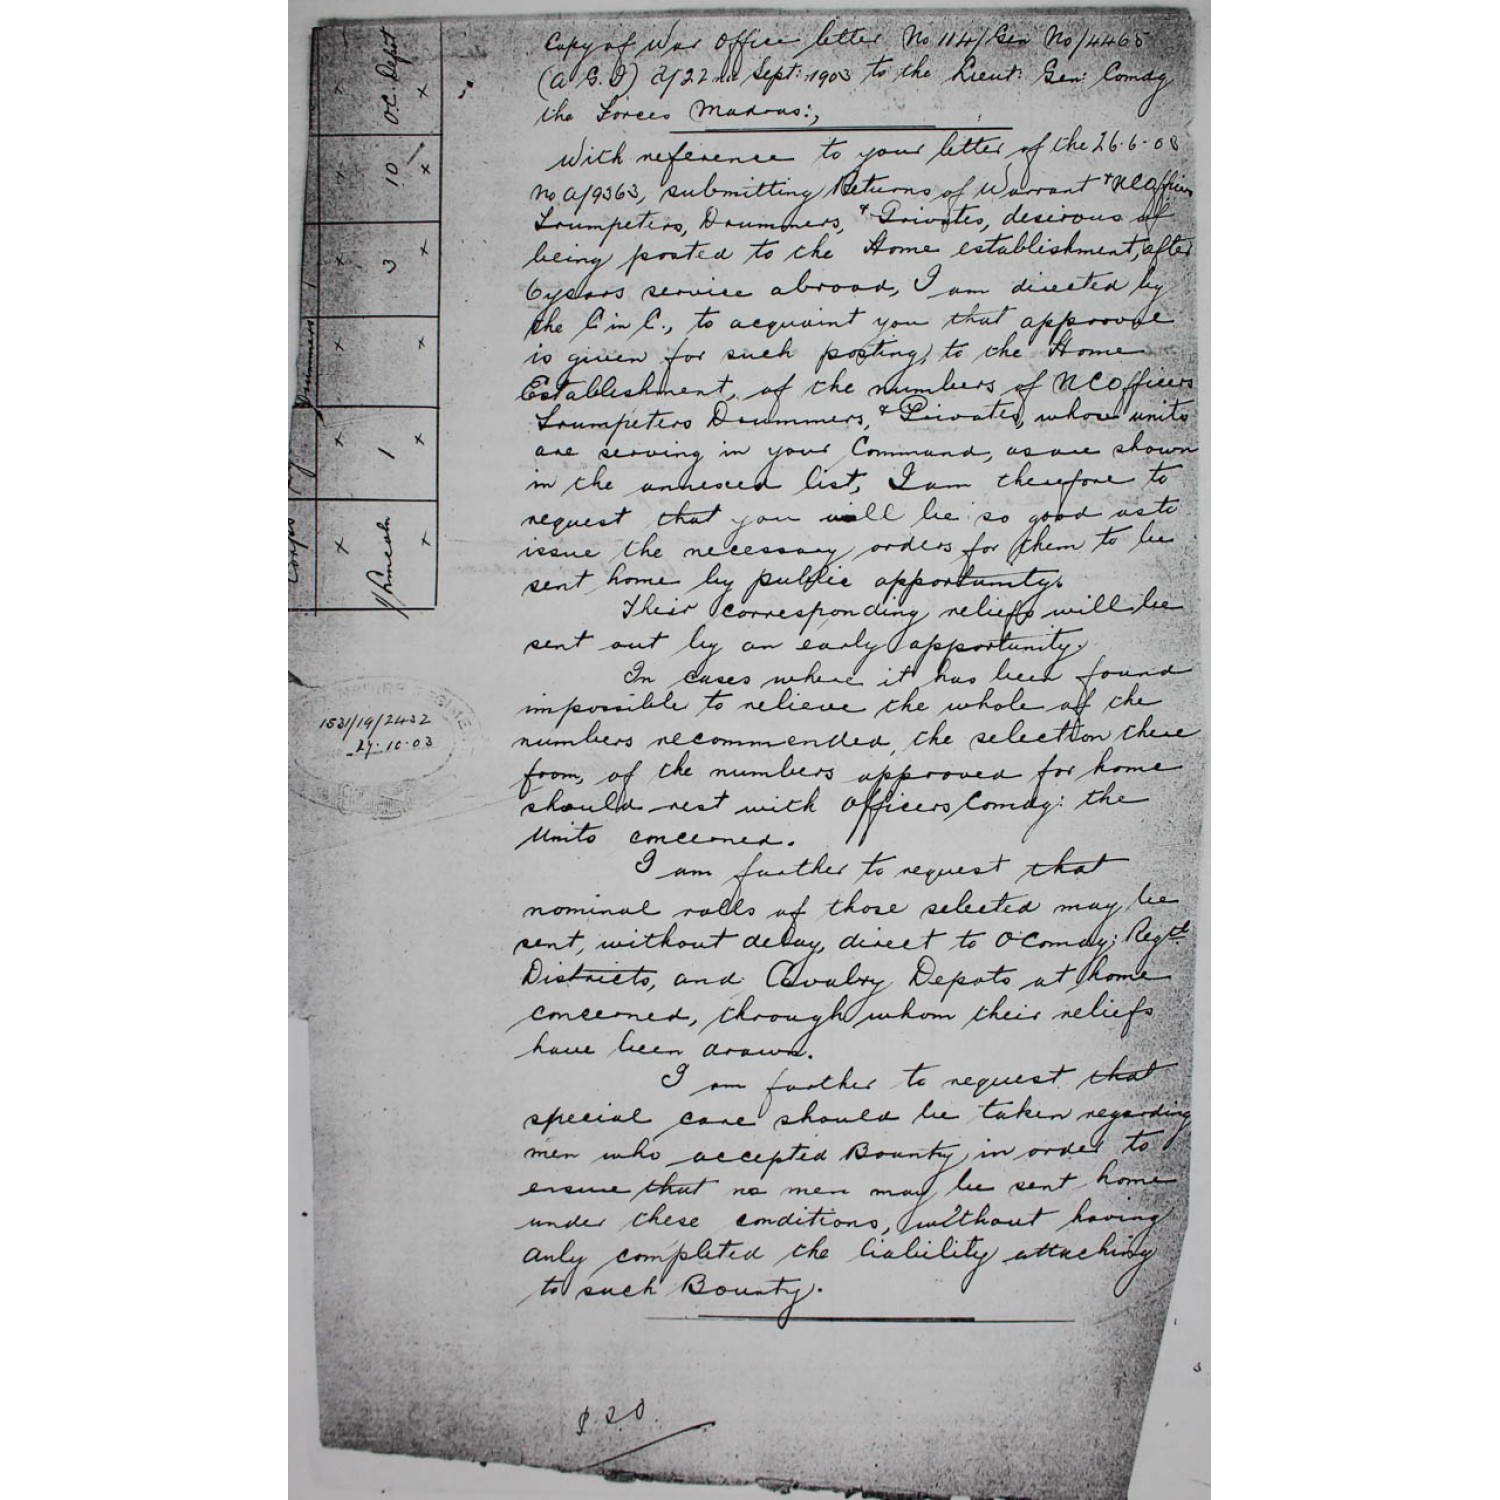 Copy of War Office letter No 114/Gen No/4465
(A G.2) d/22nd Sept: 1903 to the Lieut: Gen: Comdg
the Forces Madras:,
With reference to your letter of the 26-6-03
No A/9363, submitting Returns of Warrant & NCOfficers
Trumpeters, Drummers, & Privates, desirous of
being posted to the Home establishment, after
6 years service abroad, I am directed by
the C in C., to acquaint you that approval
is given for such posting, to the Home
Establishment, of the numbers of NCOfficers
Trumpeters Drummers, & Privates, whose units
are serving in your Command, as are shown
in the annexed list, I am therefore to
request that you will be so good as to
issue the necessary orders for them to be
sent home by public opportunity.
Their corresponding reliefs will be
sent out by an early opportunity.
In cases where it has been found
impossible to relieve the whole of the
numbers recommended, the selection there
from, of the numbers approved for home
should rest with Officers Comdg: the
Units concerned.
I am further to request that
nominal rolls of those selected may be
sent, without delay, direct to O'Comdg: Regtl
Districts, and Cavalry Depots at home
concerned, through whom their reliefs
have been drawn.
I am further to request that
special care should be taken regarding
men who accepted Bounty, in order to
ensure that no men may be sent home
under these conditions, without having
duly completed the liability attaching
to such Bounty.
Corps
Drummers
1 3 10 O.C. Depot
1531/19/2432
27-10-03